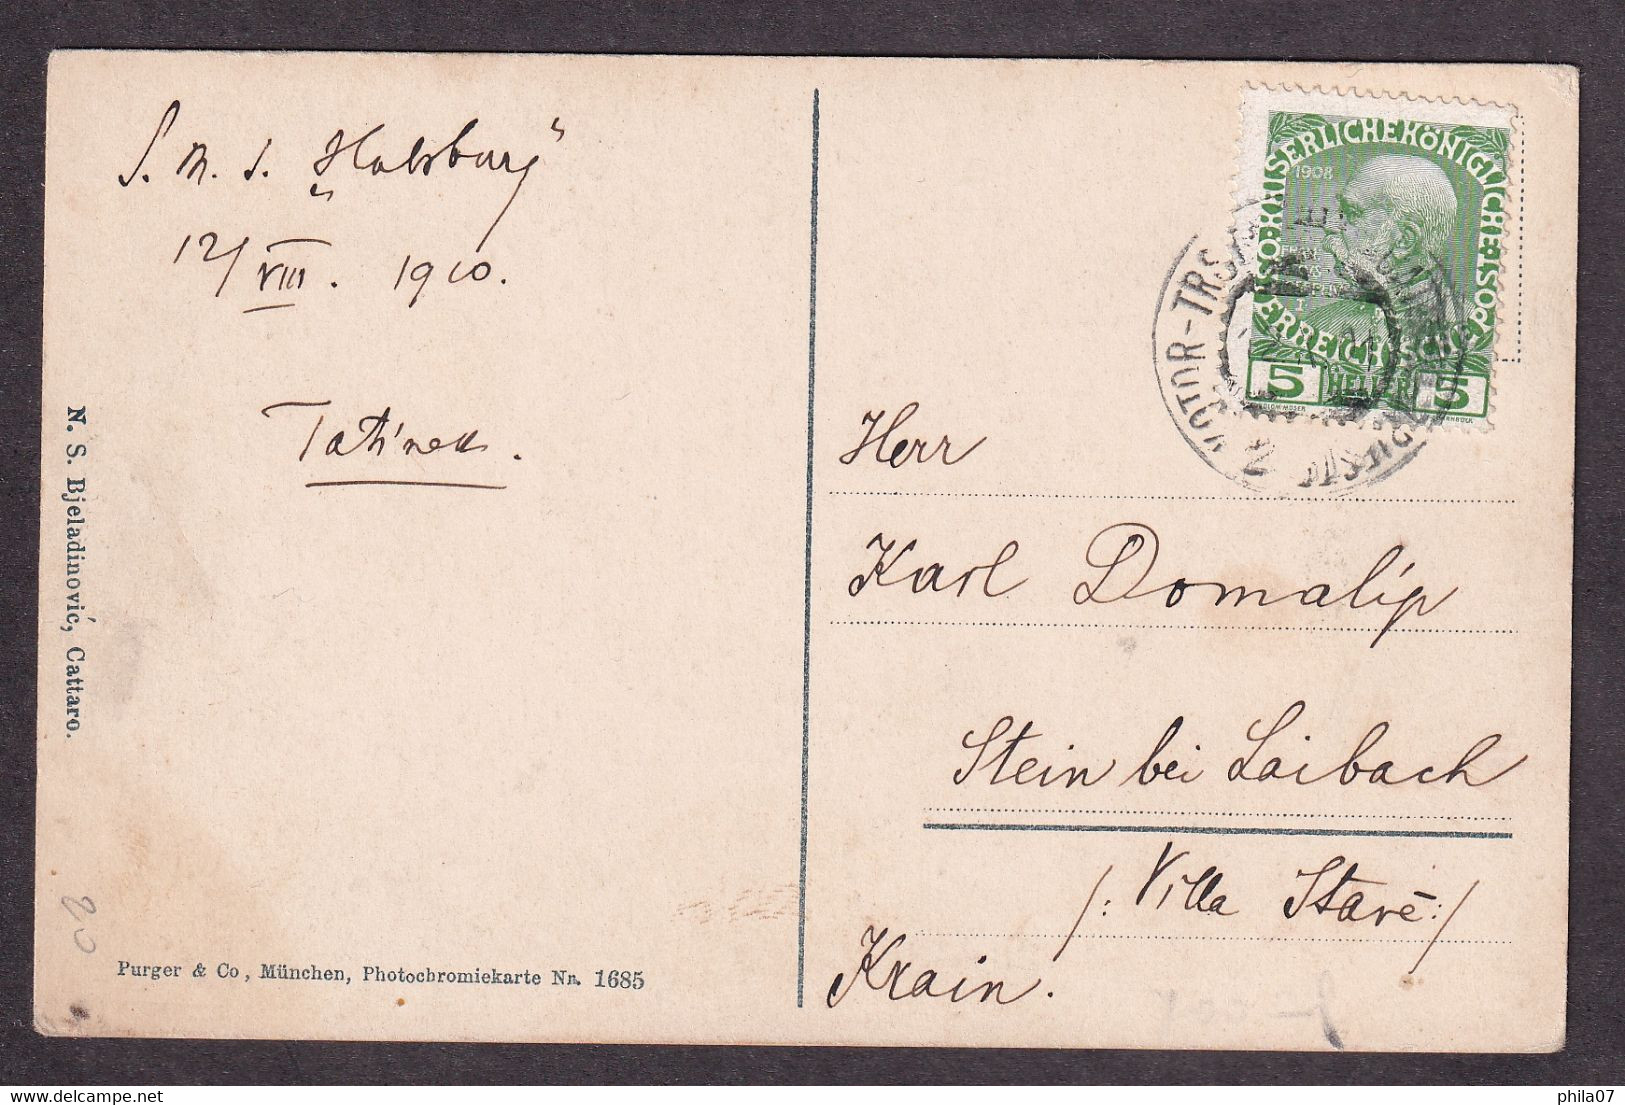 S. M. S. „Habsburg"
12/VIII. 1910.
N. S. Bjeladinović, Cattaro.
20
Purger & Co, München, Photochromiekarte Nr. 1685
KAISERLICHEKÖNIGLICHE
ÖSTERREICHISCHE POST
1908
5 HELLER 5
KOTOR-TRST
Herr
Karl Domalip
Stein bei Laibach
/: Villa Staré :/
Krain.
www.delcampe.net
phila07